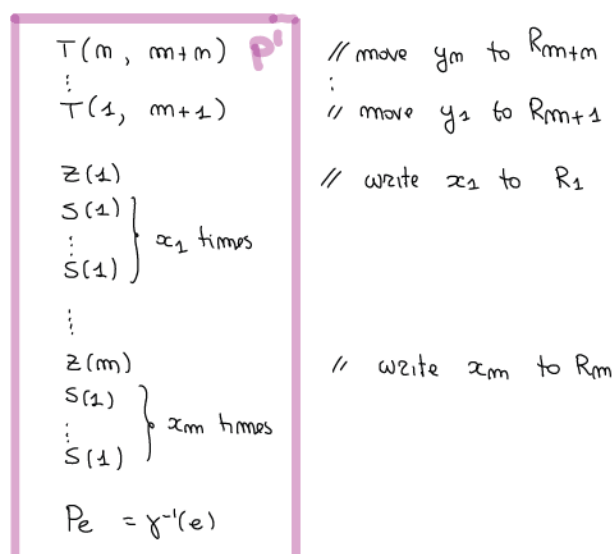 T(n, m+n) P' // move yn to Rm+n
⋮ ⋮
T(1, m+1) // move y1 to Rm+1
Z(1) // write x1 to R1
S(1)
⋮ } x1 times
S(1)
⋮
Z(m) // write xm to Rm
S(1)
⋮ } xm times
S(1)
Pe = γ⁻¹(e)